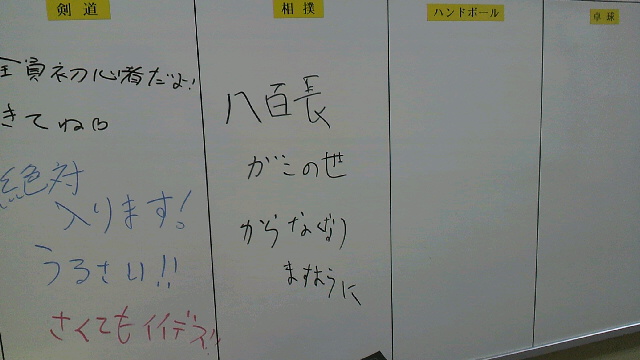 剣道
全員初心者だよ!
きてね
絶対
入ります!
うるさい!!
さくてもイイデス!
相撲
八百長
がこの世
からなくなり
ますように
ハンドボール
卓球